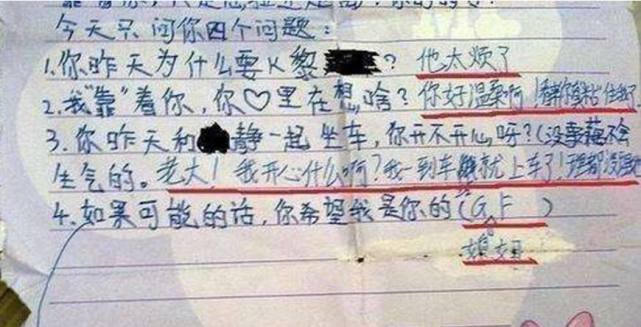 今天只问你四个问题：
1.你昨天为什么要K黎？他太烦了
2.我"靠"着你，你♡里在想啥？你好温柔啊！
3.你昨天和静一起坐车，你开不开心呀？(没事 不会
生气的。老大！我开心什么啊？我一到车 就上车了！理都没理
4.如果可能的话，你希望我是你的(G.F)